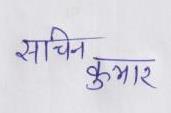 सचिन
कुमार